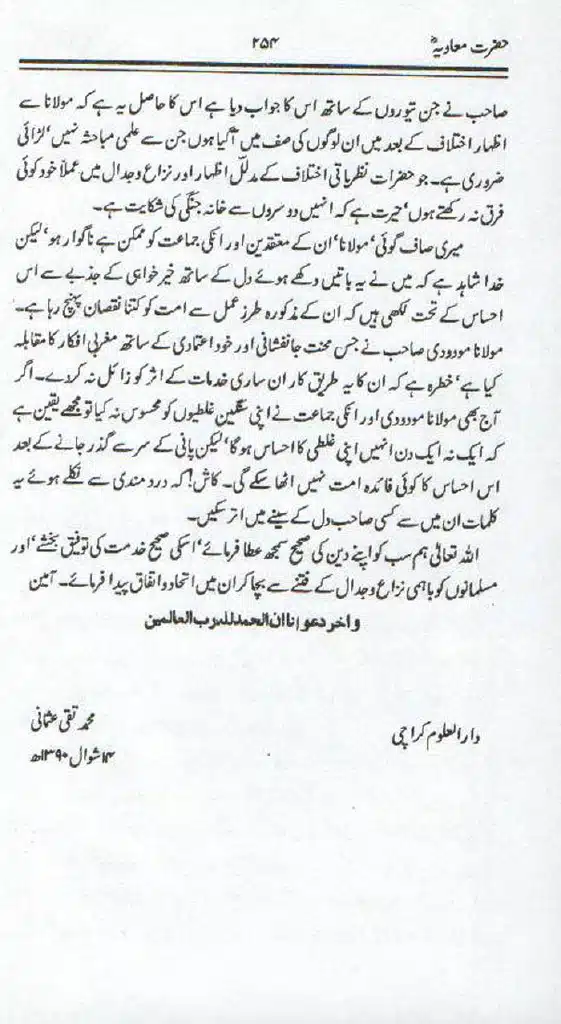 حضرت معاویہؓ ۲۵۴
صاحب نے جن تیوروں کے ساتھ اس کا جواب دیا ہے اس کا حاصل یہ ہے کہ مولانا سے
اظہار اختلاف کے بعد میں ان لوگوں کی صف میں آگیا ہوں جن سے علمی مباحثہ نہیں‘ لڑائی
ضروری ہے۔ جو حضرات نظریاتی اختلاف کے مدلل اظہار اور نزاع وجدال میں عملاً خود کوئی
فرق نہ رکھتے ہوں‘ حیرت ہے کہ انہیں دوسروں سے خانہ جنگی کی شکایت ہے۔
میری صاف گوئی‘ مولانا‘ ان کے معتقدین اور انکی جماعت کو ممکن ہے ناگوار ہو‘ لیکن
خدا شاہد ہے کہ میں نے یہ باتیں دکھے ہوئے دل کے ساتھ خیر خواہی کے جذبے سے اس
احساس کے تحت لکھی ہیں کہ ان کے مذکورہ طرز عمل سے امت کو کتنا نقصان پہنچ رہا ہے۔
مولانا مودودی صاحب نے جس محنت جانفشانی اور خود اعتمادی کے ساتھ مغربی افکار کا مقابلہ
کیا ہے‘ خطرہ ہے کہ ان کا یہ طریق کار ان ساری خدمات کے اثر کو زائل نہ کردے۔ اگر
آج بھی مولانا مودودی اور انکی جماعت نے اپنی سنگین غلطیوں کو محسوس نہ کیا تو مجھے یقین ہے
کہ ایک نہ ایک دن انہیں اپنی غلطی کا احساس ہوگا‘ لیکن پانی کے سر سے گذر جانے کے بعد
اس احساس کا کوئی فائدہ امت نہیں اٹھا سکے گی۔ کاش! کہ دردمندی سے نکلے ہوئے یہ
کلمات ان میں سے کسی صاحب دل کے سینے میں اتر سکیں۔
اللہ تعالیٰ ہم سب کو اپنے دین کی صحیح سمجھ عطا فرمائے‘ اسکی صحیح خدمت کی توفیق بخشے‘ اور
مسلمانوں کو باہمی نزاع وجدال کے فتنے سے بچا کر ان میں اتحاد و اتفاق پیدا فرمائے۔ آمین
واخر دعوانا ان الحمد للہ رب العالمین
محمد تقی عثمانی
دارالعلوم کراچی
۱۴ شوال ۱۳۹۰ھ